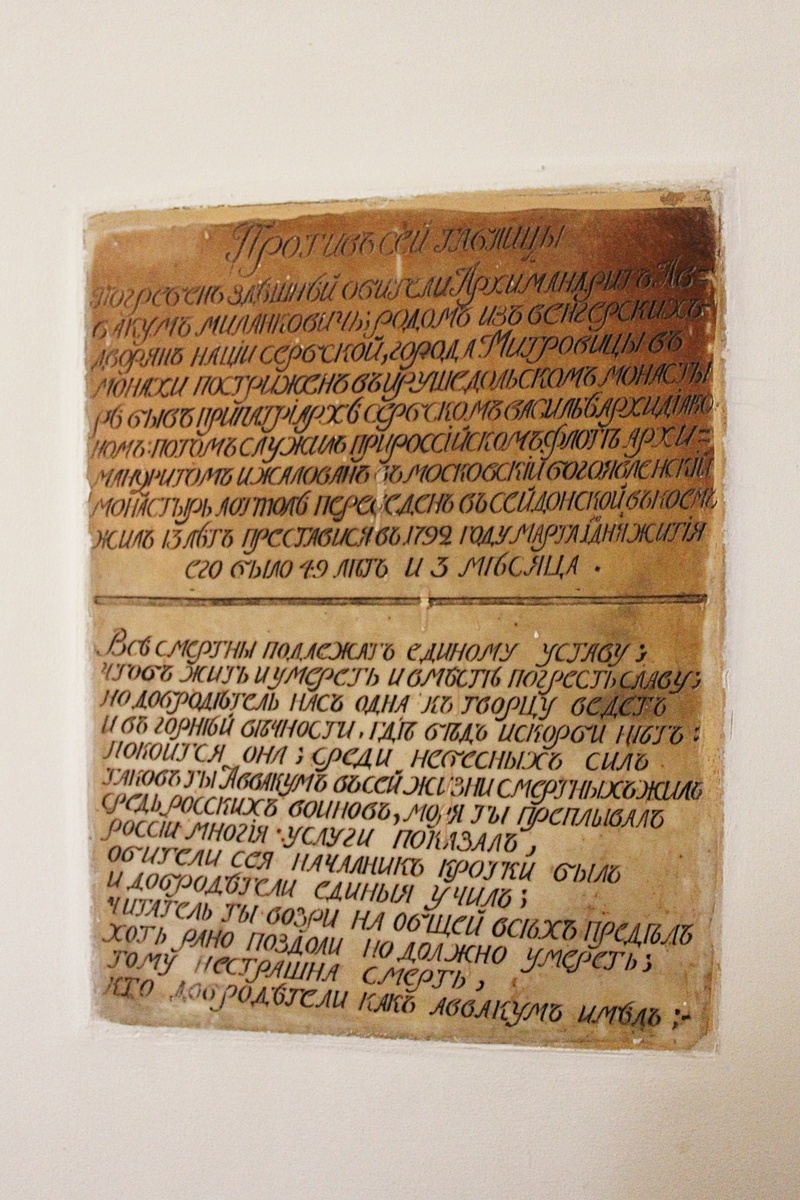 Противъ сей таблицы
погребенъ здѣшнѣй обители Архимандритъ Ав=
вакумъ миланковичь; родомъ изъ венгерскихъ
дворянъ націи сербской, города Митровицы въ
монахи постриженъ въ крушедольскомъ монасты
рѣ бывъ при патріархѣ сербскомъ василье архидіяко
номъ: потомъ служилъ при россійскомъ флотѣ архи=
мандритомъ и жалованъ въ московскій богоявленскій
монастырь а оттолѣ переведенъ въ сей донской въ коемъ
жилъ 13 лѣтъ преставися въ 1792 году марта дня житія
его было 49 лѣтъ и 3 мѣсяца .
Всѣ смертны подлежатъ единому уставу ;
чтобъ жить и умереть и вмѣстѣ погресть славу ;
но добродѣтель насъ одна къ творцу ведетъ
и въ горнѣй вѣчности , гдѣ бѣдъ и скорби нѣтъ :
покоится она ; среди небесныхъ силъ
таковъ ты Аввакумъ въ сей жизни смертныхъ жилъ
средь росскихъ воиновъ , моря ты преплывалъ
россіи многія услуги показалъ ,
обители сея началникъ кротки былъ
и добродѣтели единыя училъ ;
читатель ты возри на общей всѣхъ предѣлъ
хоть рано поздоли но должно умереть ;
тому нестрашна смерть ,
кто добродѣтели какъ аввакумъ имѣлъ ;-